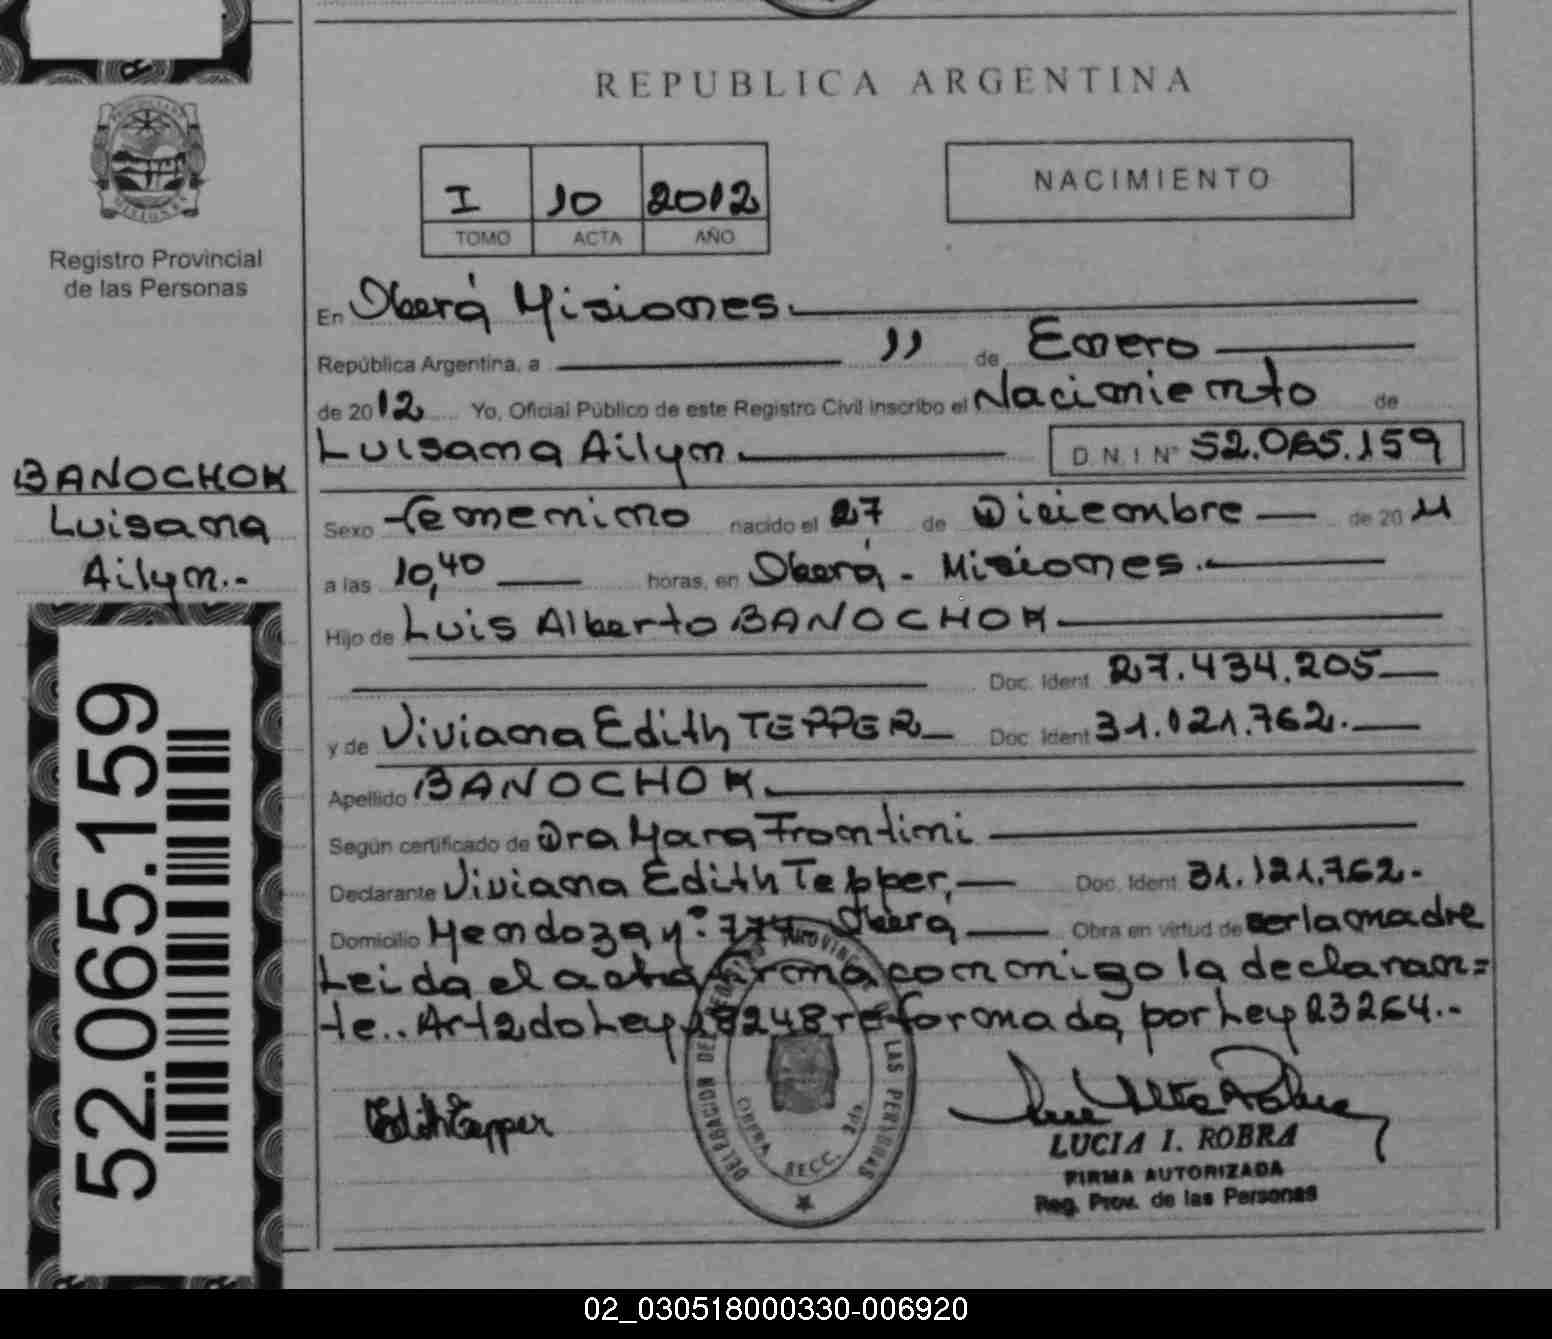 REPUBLICA ARGENTINA
I 10 2012
TOMO ACTA AÑO
NACIMIENTO
Registro Provincial
de las Personas
En Oberá Misiones.
República Argentina, a 11 de Enero
de 2012 Yo, Oficial Público de este Registro Civil inscribo el Nacimiento de
Luisana Ailyn D.N.I Nº 52.065.159
BANOCHOK
Luisana
Ailyn.-
Sexo Femenino nacido el 27 de Diciembre de 2011
a las 10,40 horas, en Oberá - Misiones.
Hijo de Luis Alberto BANOCHOK
Doc. Ident. 27.434.205
y de Viviana Edith TEPPER Doc. Ident 31.121.762.
Apellido BANOCHOK.
Según certificado de Dra Mara Frontini
Declarante Viviana Edith Tepper, Doc. Ident. 31.121.762.
Domicilio Mendoza nº: Oberá Obra en virtud de ser la madre
Leida el acta firma conmigo la declaran=
te.. Art 2 do Ley 18248 reformada por Ley 23264.-
Edith Tepper
DELEGACION DEL REGISTRO PROVINCIAL DE LAS PERSONAS
OBERA SECC. 2da
LUCIA I. ROBRA
FIRMA AUTORIZADA
Reg. Prov. de las Personas
52.065.159
02_030518000330-006920